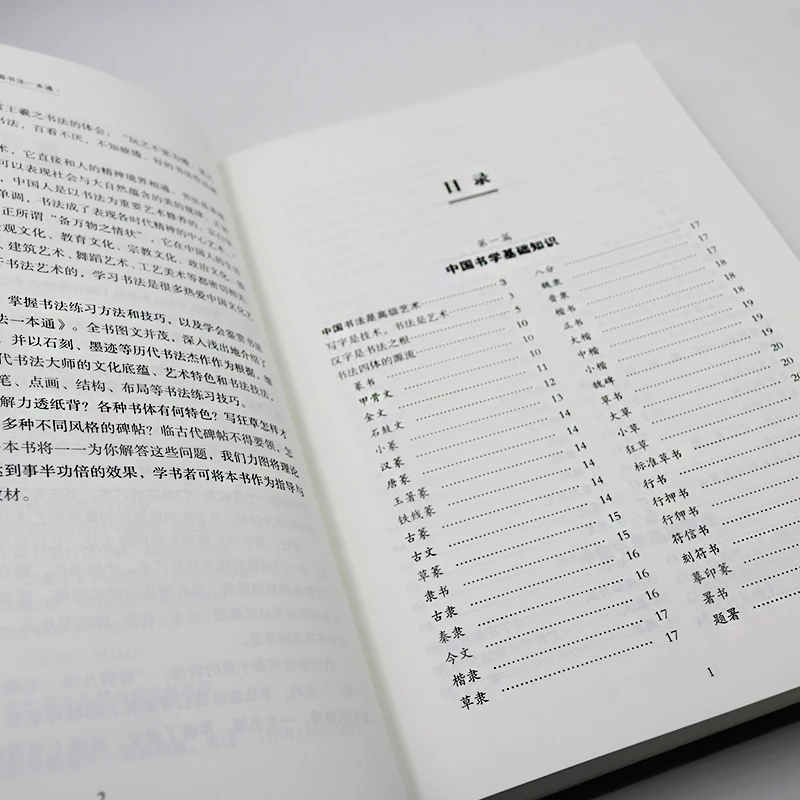 书法一本通
王羲之书法的体会：
书法，百看不厌，不知疲倦。
术，它直接和人的精神境界相通。
可以表现社会与大自然蕴含的美的规律。
，中国人是以书法为重要艺术修养的。
单调，书法成了表现各时代精神的中心艺术。
正所谓“备万物之情状”，它在中国人的生活
观文化、教育文化、宗教文化、政治文化、
、建筑艺术、舞蹈艺术、工艺美术等都密切相关。
书法艺术的，学习书法是很多热爱中国文化艺
掌握书法练习方法和技巧，以及学会鉴赏书法
法一本通》。全书图文并茂，深入浅出地介绍了
，并以石刻、墨迹等历代书法杰作作为根据，
代书法大师的文化底蕴、艺术特色和书法技法，
笔、点画、结构、布局等书法练习技巧。
解力透纸背？各种书体有何特色？写狂草怎样才
多种不同风格的碑帖？临古代碑帖不得要领，怎
本书将一一为你解答这些问题，我们力图将理论
达到事半功倍的效果，学书者可将本书作为指导与
教材。
2
目录
第一篇
中国书学基础知识
中国书法是高级艺术 3
写字是技术，书法是艺术 3
汉字是书法之根 5
书法四体的源流 10
篆书 10
甲骨文 10
金文 11
石鼓文 12
小篆 13
汉篆 14
唐篆 14
玉箸篆 14
铁线篆 14
古篆 14
古文 14
草篆 15
隶书 15
古隶 16
秦隶 16
今文 16
楷隶 17
草隶 17
八分 17
魏隶 17
晋隶 17
楷书 18
正书 18
大楷 18
中楷 19
小楷 19
魏碑 19
草书 20
大草 20
小草 20
狂草
标准草书
行书
行押书
行狎书
符信书
刻符书
摹印篆
署书
题署
1